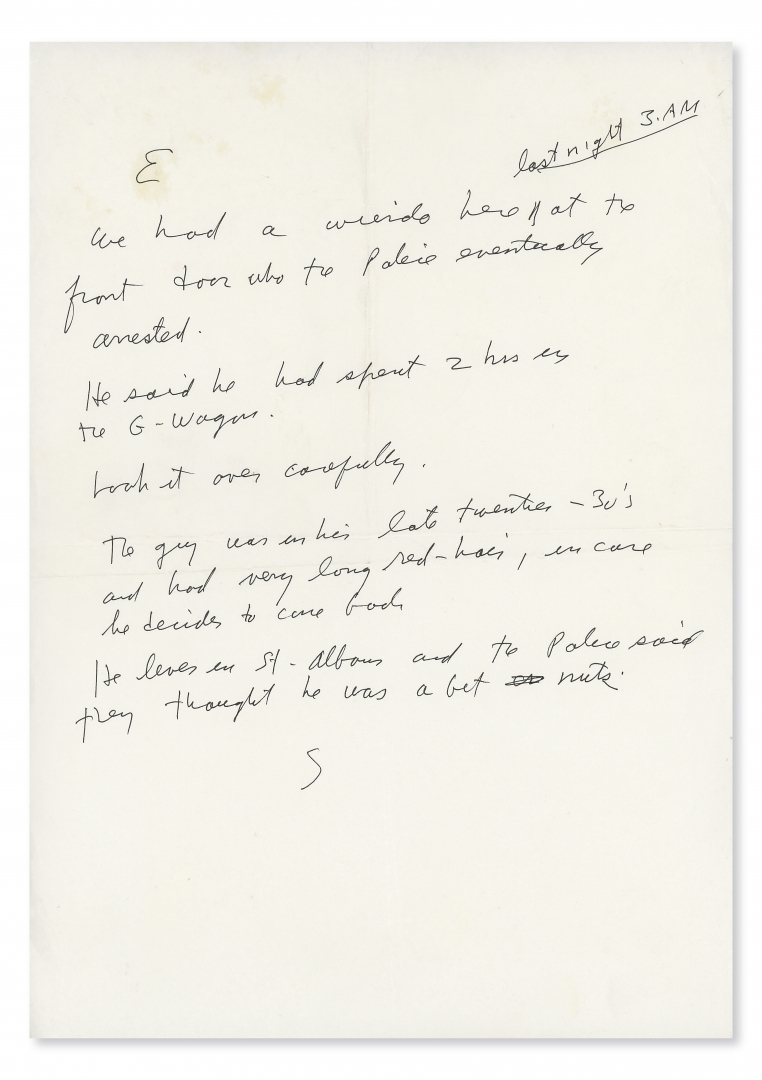 last night 3.AM
E
We had a wierdo here at the
front door who the Police eventually
arrested.
He said he had spent 2 hrs in
the G-Wagon.
Look it over carefully.
The guy was in his late twenties - 30's
and had very long red-hair, in case
he decides to come back
He lives in St-Albans and the Police said
they thought he was a bit nuts.
S